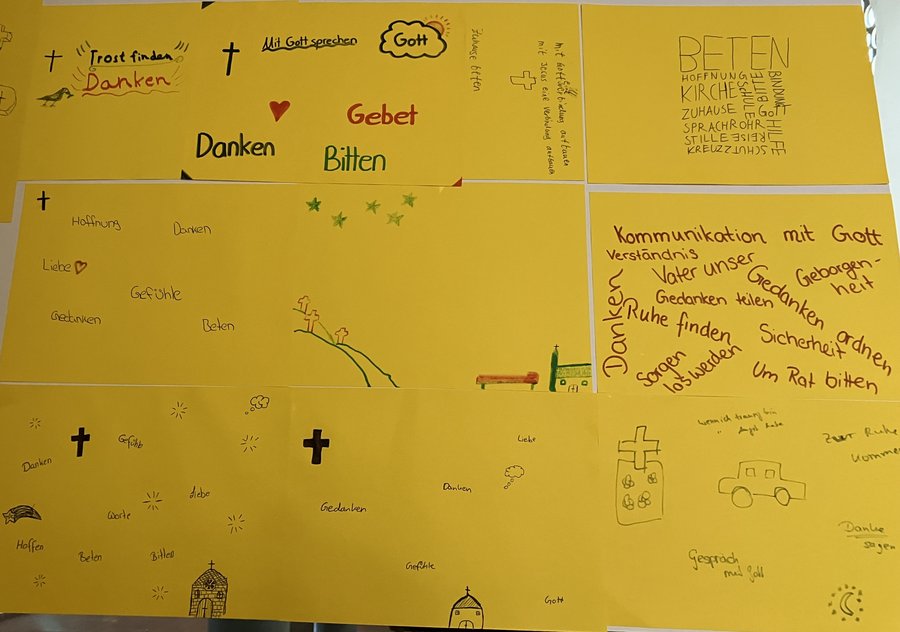 Trost finden
Danken
Mit Gott sprechen
Gott
Gebet
Danken
Bitten
Zuhause beten
mit Gott Verbindung aufbauen
mit Jesus eine Verbindung aufbauen
BETEN
HOFFNUNG
KIRCHE
ZUHAUSE
SPRACHROHR
STILLE
KREUZ
SCHULE
BITTE
BINDUNG
GOTT
HILFE
REISE
SCHUTZ
Hoffnung
Danken
Liebe
Gefühle
Gedanken
Beten
Kommunikation mit Gott
Verständnis
Vater unser
Geborgen-
heit
Danken
Gedanken teilen
Gedanken ordnen
Ruhe finden
Sicherheit
Sorgen
los werden
Um Rat bitten
Gefühle
Danken
Liebe
Worte
Hoffen
Beten
Bitten
Liebe
Danken
Gedanken
Gefühle
Gott
wenn ich traurig bin
" Angst habe
Zur Ruhe
kommen
Danke
sagen
Gespräch
mit Gott